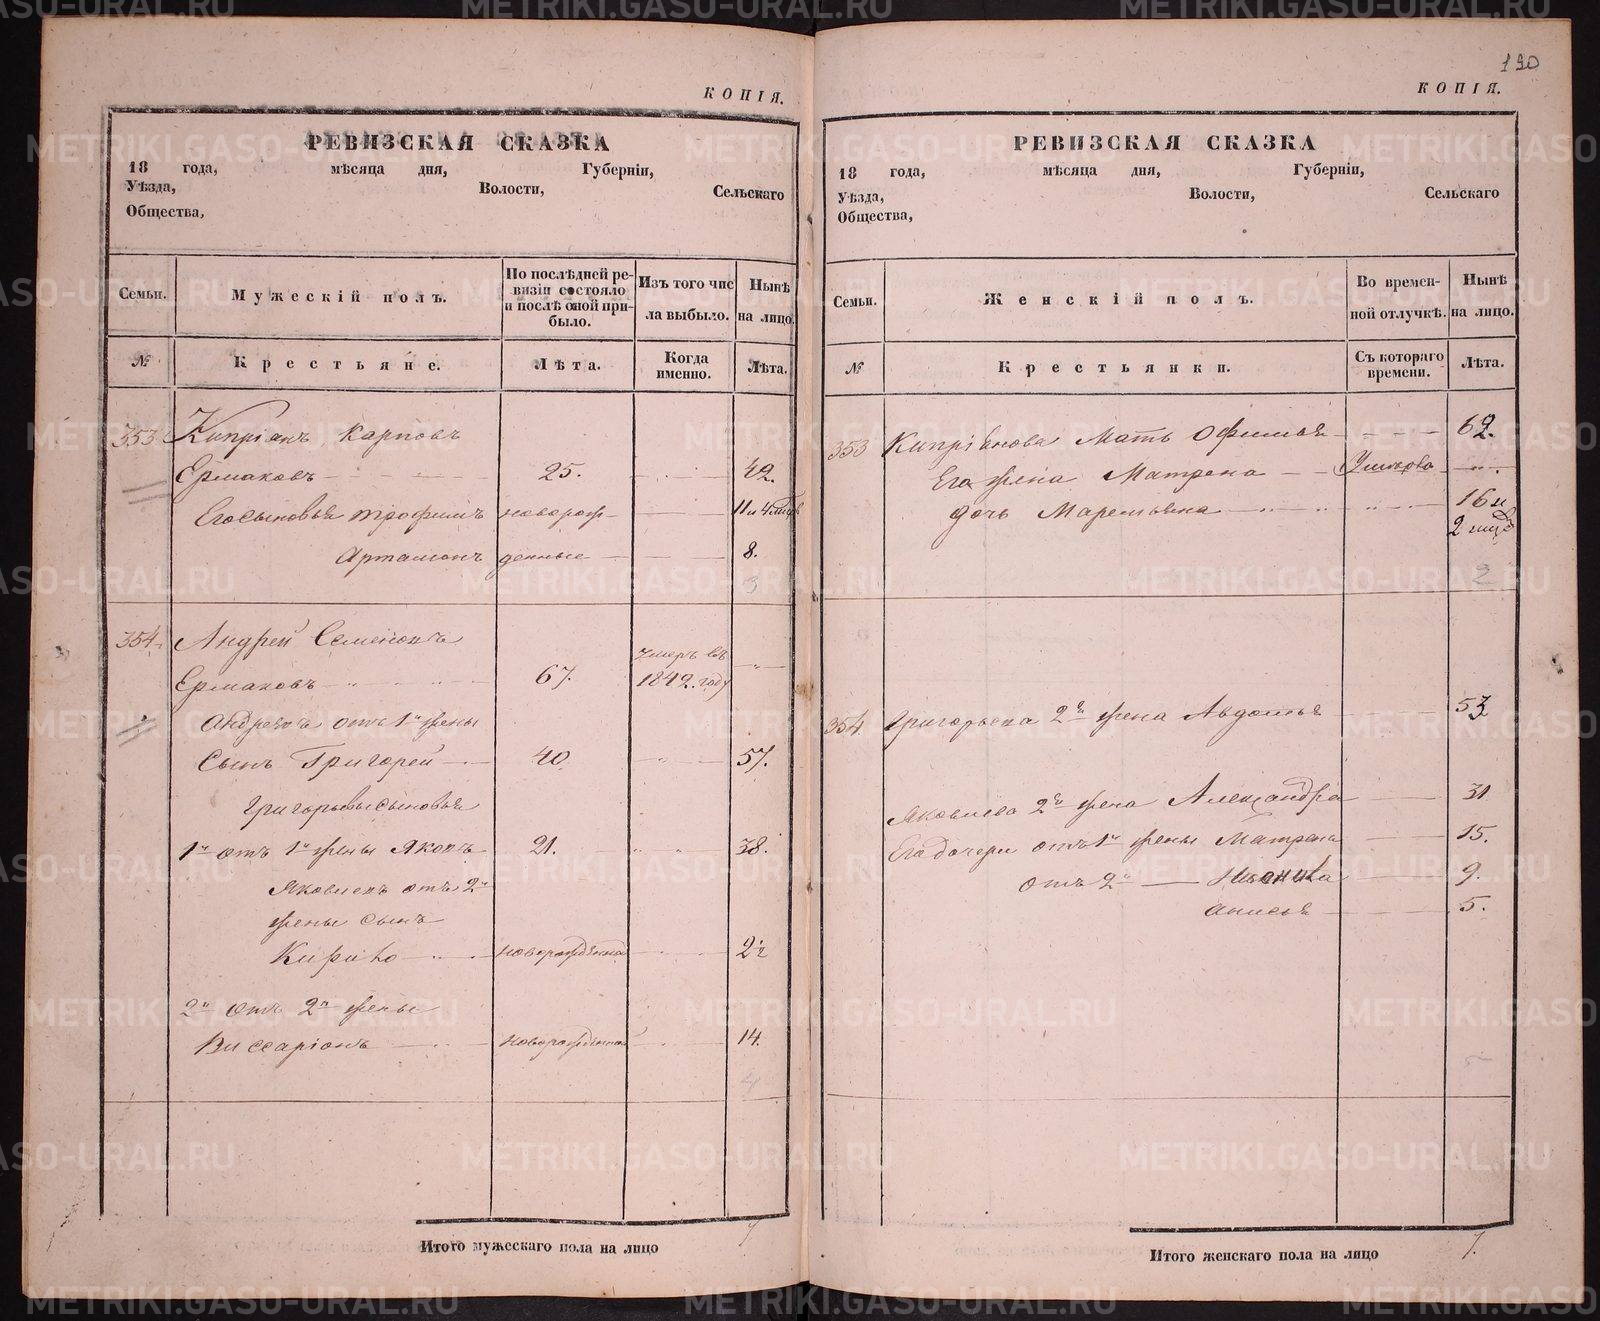 190
КОПІЯ.
РЕВИЗСКАЯ СКАЗКА
18 года, мѣсяца дня, Губерніи,
Уѣзда, Волости, Сельскаго
Общества,
Семьи.
Мужескій полъ.
По послѣдней ре-
визіи состояло
и послѣ оной при-
было.
Изъ того чис
ла выбыло.
Нынѣ
на лицо.
№
Крестьяне.
Лѣта.
Когда
именно.
Лѣта.
353 Кипріанъ Карповъ
Ермаковъ 25. 42.
Его сыновья Трофимъ новорож- 11 и 4 мѣс
Артамонъ денные 8.
3
354. Андрей Семеновъ
Ермаковъ 67. умеръ въ
1842. году
Андреевъ отъ 1й жены
Сынъ Григорей 40. 57.
Григорьевы сыновья
1й отъ 1й жены Яковъ 21. 38.
Яковлевъ отъ 2й
жены сынъ
новорожденной
2й отъ 2й жены
Виссаріонъ новорожденной 14.
4
Итого мужескаго пола на лицо 7
КОПІЯ.
РЕВИЗСКАЯ СКАЗКА
18 года, мѣсяца дня, Губерніи,
Уѣзда, Волости, Сельскаго
Общества,
Семьи.
Женскій полъ.
Во времен-
ной отлучкѣ.
Нынѣ
на лицо.
№
Крестьянки.
Съ котораго
времени.
Лѣта.
353 Кипріянова Мать Офимья 62.
Его жена Матрена
дочь Маремьяна 16 и
2 мѣс
2
354 Григорьева 2я жена Авдотья 53
Яковлева 2я жена Александра 31
Его дочери отъ 1й жены Матрена 15.
отъ 2й 9.
Анисья 5.
Итого женскаго пола на лицо 7.
METRIKI.GASO-URAL.RU